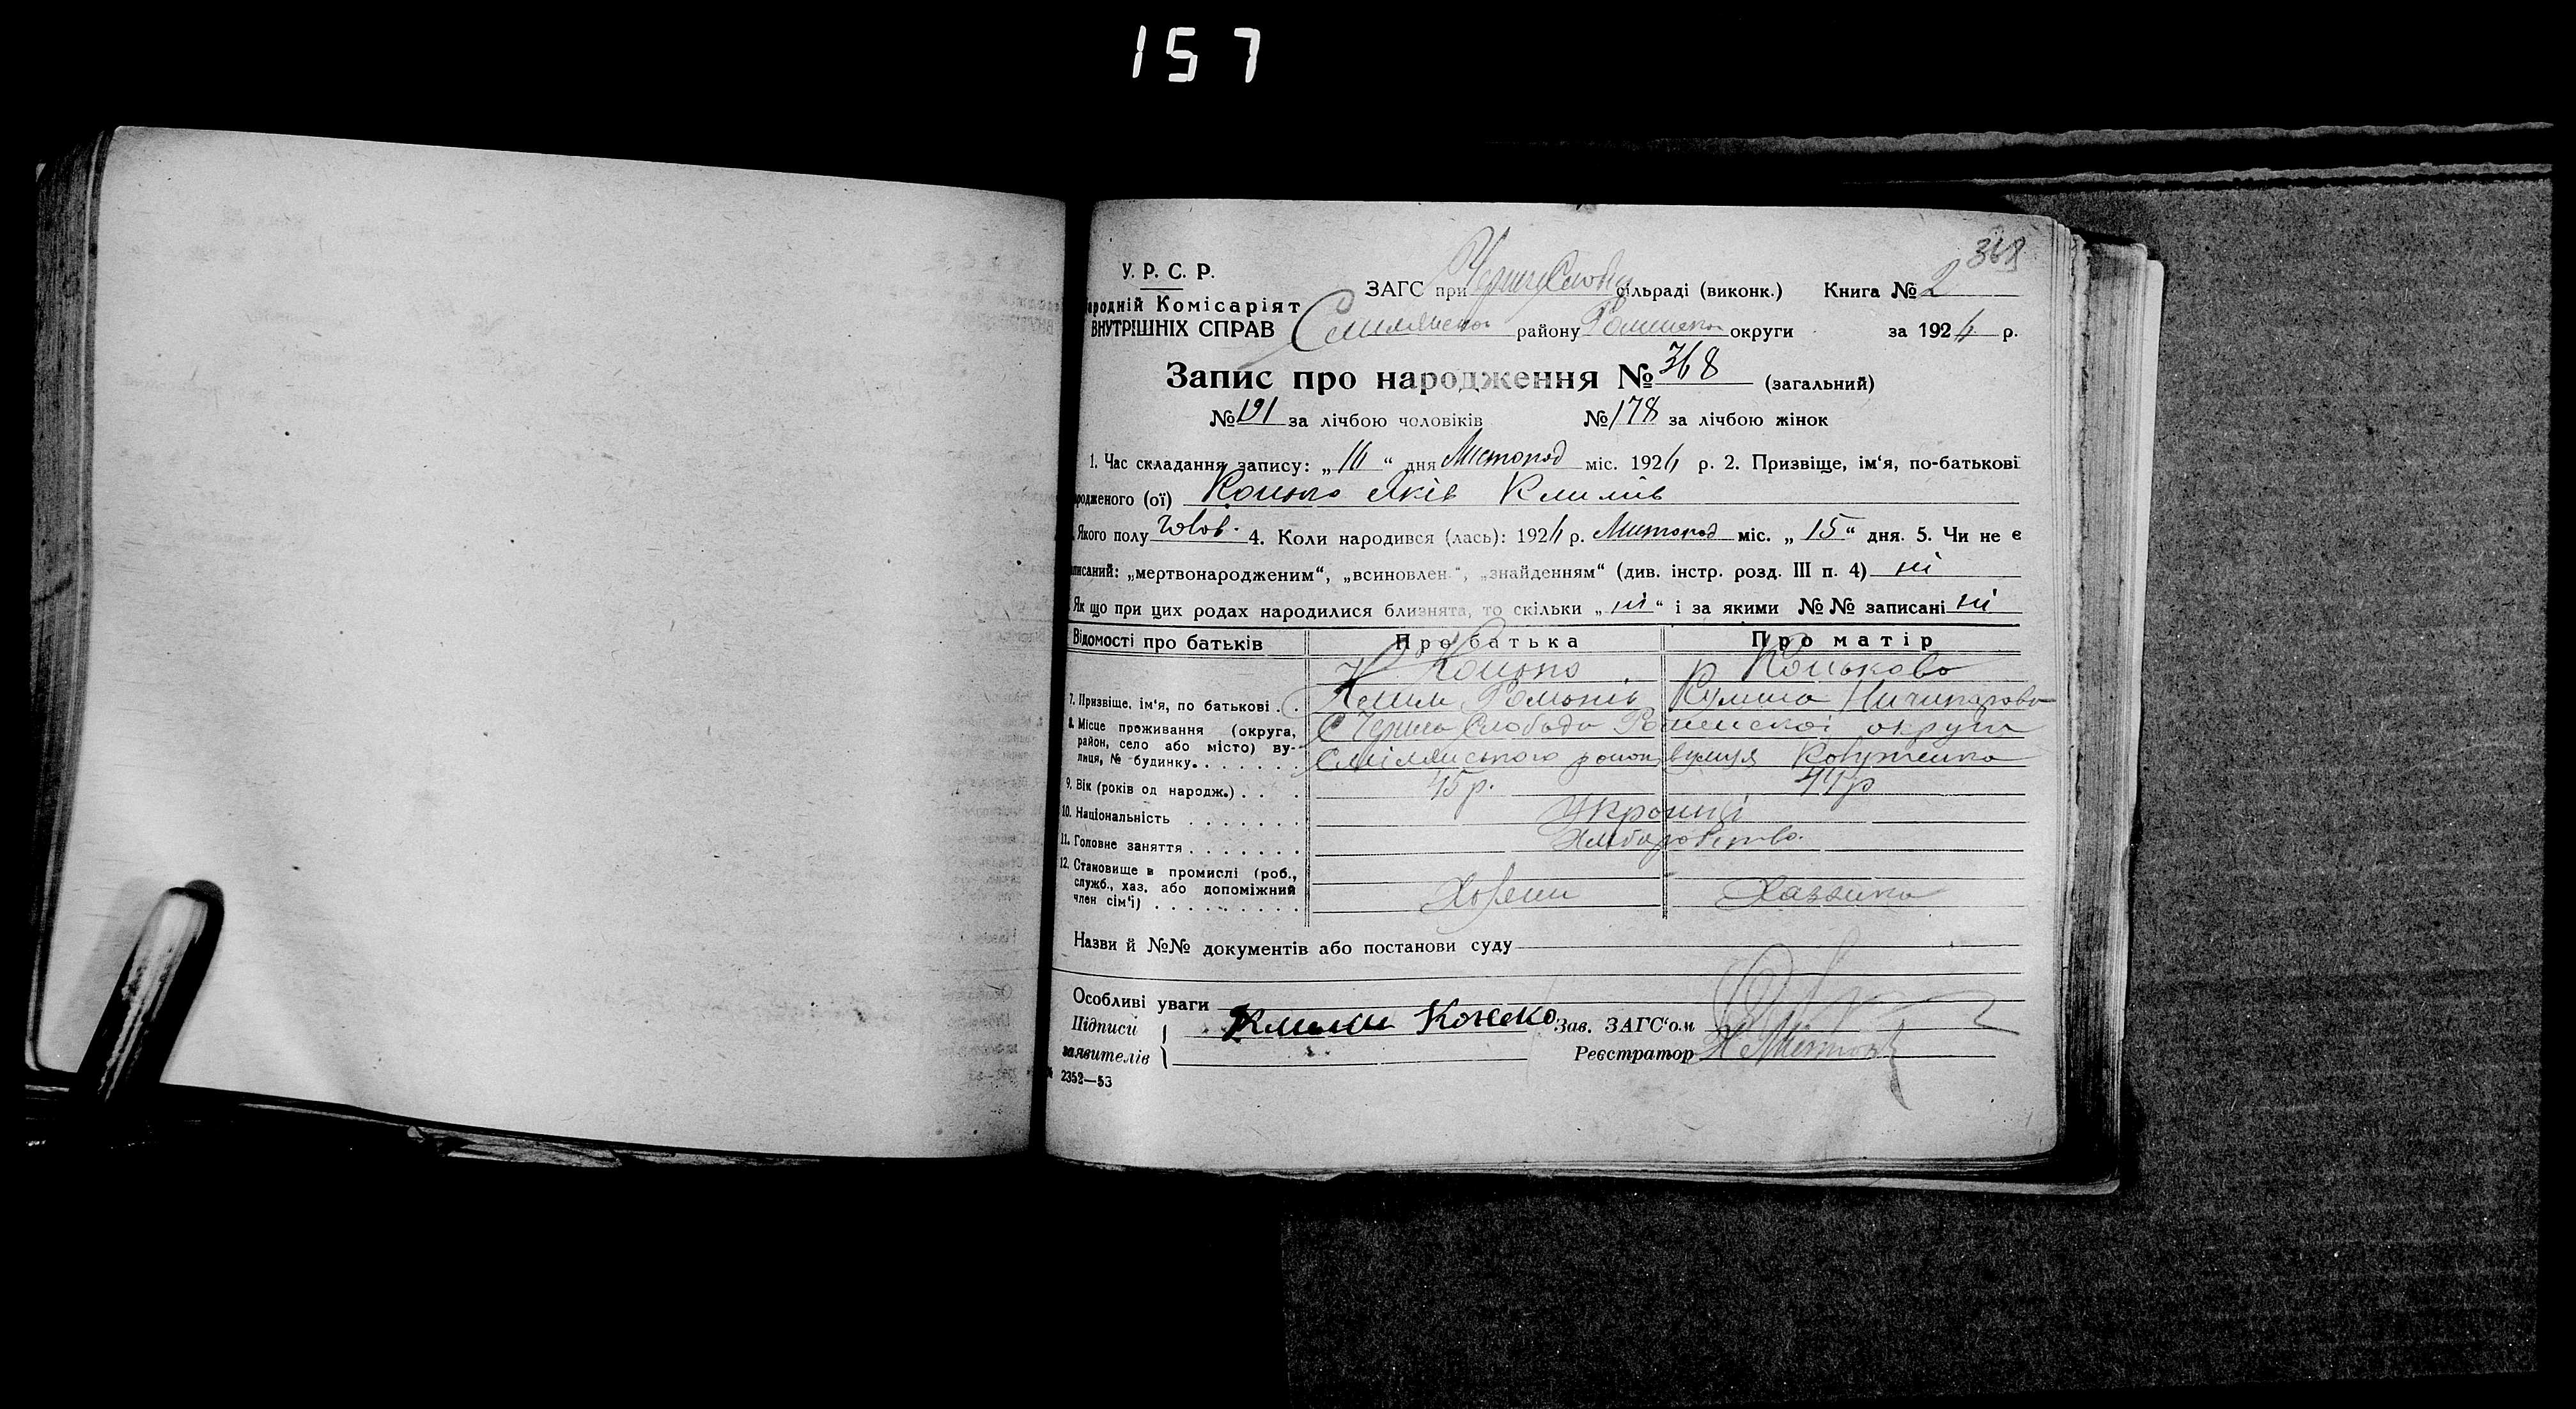 157
368
У. Р. С. Р.
ЗАГС при сільраді (виконк.) Книга № 2
ародній Комісаріят
ВНУТРІШНІХ СПРАВ району округи за 192 р.
Запис про народження № 368 (загальний)
№ 191 за лічбою чоловіків № 178 за лічбою жінок
1. Час складання запису: „16“ дня Листопад міс. 192 р. 2. Призвіще, ім'я, по-батькові
родженого (ої) Яків Климів
Якого полу чолов. 4. Коли народився (лась): 192 р. Листопад міс. „15“ дня. 5. Чи не є
писаний: „мертвонародженим“, „всиновлен “, „знайденням“ (див. інстр. розд. III п. 4) ні
Як що при цих родах народилися близнята, то скільки „ні“ і за якими №№ записані ні
Відомості про батьків Про батька Про матір
Конько Конькова
7. Призвіще, ім'я, по батькові . . Клим Романів
8. Місце проживання (округа, С Черна Слобода Роменскоі округи
район, село або місто) ву-
лиця, № будинку. . . . . . . Смілянського району вулиця
9. Вік (років од народж.) . . . 45 р. 44 р
10. Національність . . . . . . . Українці
11. Головне заняття . . . . . . . Хліборобство.
12. Становище в промислі (роб.,
служб., хаз. або допоміжний Хазяин Хазяика
член сім'ї) . . . . . . . . .
Назви й №№ документів або постанови суду
Особливі уваги
Підписи Клим Конько Зав. ЗАГС'ом
заявителів Реєстратор
2352—53